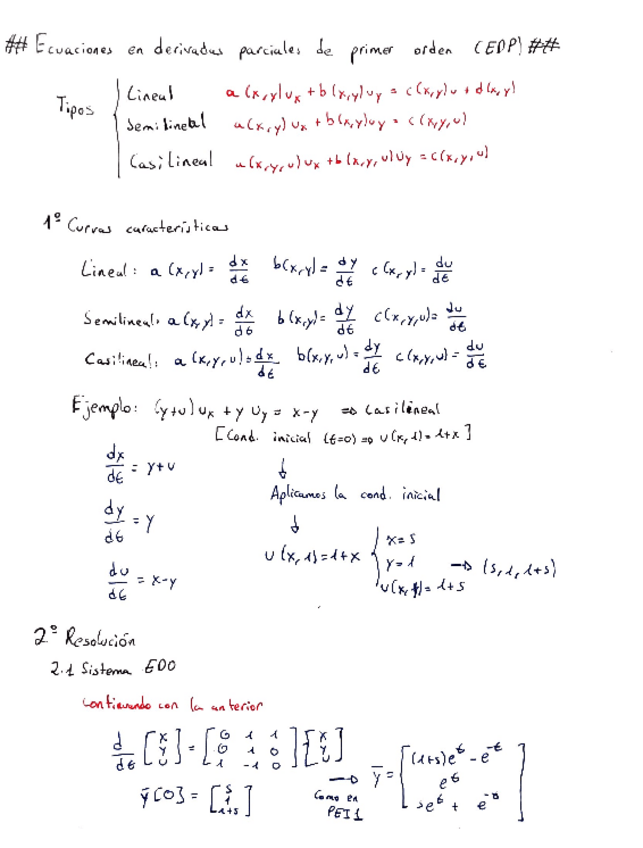 ## Ecuaciones en derivadas parciales de primer orden (EDP) ##
Tipos
Lineal a(x,y)ux + b(x,y)uy = c(x,y)u + d(x,y)
Semilineal a(x,y)ux + b(x,y)uy = c(x,y,u)
Casilineal a(x,y,u)ux + b(x,y,u)uy = c(x,y,u)
1º Curvas características
Lineal: a(x,y) = dx/dt b(x,y) = dy/dt c(x,y) = du/dt
Semilineal: a(x,y) = dx/dt b(x,y) = dy/dt c(x,y,u) = du/dt
Casilineal: a(x,y,u) = dx/dt b(x,y,u) = dy/dt c(x,y,u) = du/dt
Ejemplo: (y+u)ux + y uy = x-y => Casilineal
[Cond. inicial (t=0) => u(x,1) = 1+x]
dx/dt = y+u
↓
Aplicamos la cond. inicial
dy/dt = y
↓
u(x,1) = 1+x { x=s y=1 u(x,y)=1+s → (s,1,1+s)
du/dt = x-y
2º Resolución
2.1 Sistema EDO
Continuando con la anterior
d/dt [x y u] = [0 1 1 0 1 0 1 -1 0][x y u]
ȳ[0] = [s 1 1+s]
→
Como en PEI1
ȳ = [(1+s)e^t - e^-t e^t se^t + e^-t]